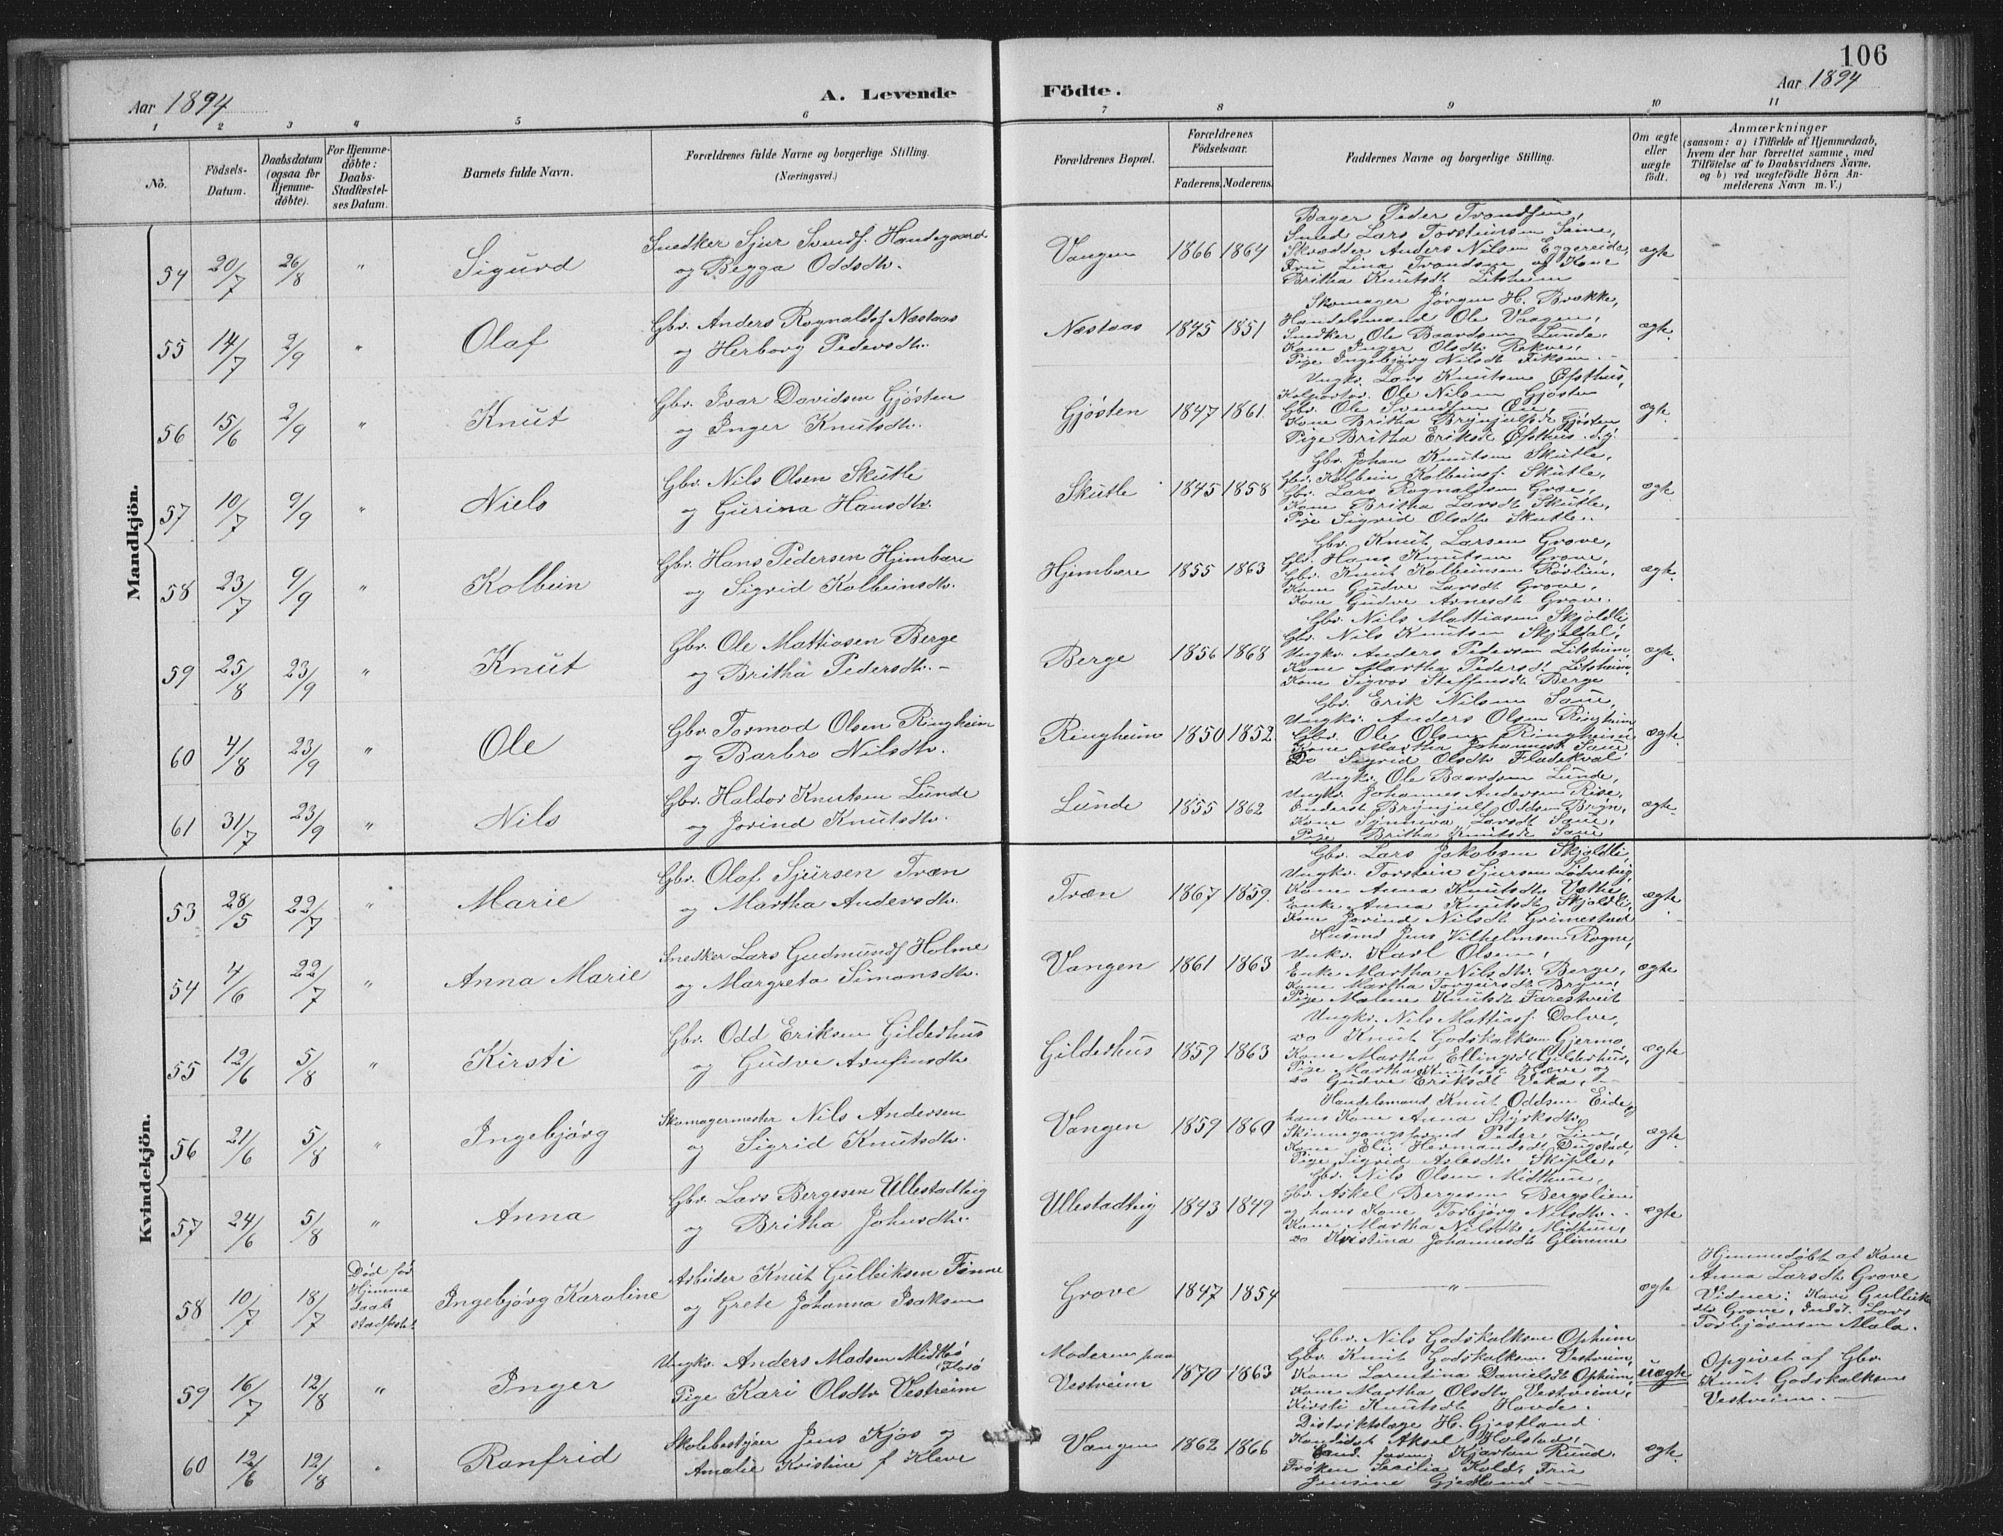 106
Aar 1894
A. Levende
Födte.
Aar 1894
1 2 3 4 5 6 7 8 9 10 11
No.
Födsels-
Datum.
Daabsdatum
(ogsaa for
Hjemme-
döbte).
For Hjemme-
döbte:
Daabs-
Stadfæstel-
ses Datum.
Barnets fulde Navn.
Forældrenes fulde Navne og borgerlige Stilling.
(Næringsvei.)
Forældrenes Bopæl.
Forældrenes
Födselsaar.
Faderens. Moderens.
Faddernes Navne og borgerlige Stilling.
Om ægte
eller
uægte
født.
Anmærkninger
(saasom: a) i Tilfælde af Hjemmedaab,
hvem der har forrettet samme, med
Tilføielse af to Daabsvidners Navne,
og b) ved uægtefødte Börn An-
melderens Navn m. V.)
Mandkjön.
54 20/7 26/8 " Sigurd
Snedker Sjur Svendsf. Handegaard
og Begga Oddsdtr.
Vangen 1866 1864
Bager Peder Trondsen,
Smed Lars Torsteinsen Seine,
Skrædder Anders Nilsen Eggereide,
Fru Lina Trondsen og Kone
Britha Knutsdt Litsheim
ægte
55 14/7 2/9 " Olaf
Gbr. Anders Rognaldsf Næstaas
og Herborg Pedersdtr.
Næstaas 1845 1851
Skomager Jörgen H. Brække,
Handelsmand Ole Vangen,
Snedker Ole Baardsen Lunde,
Kone Inger Olsdtr Rokne,
Pige Ingebjörg Nilsdt Fiksen
ægte
56 15/6 2/9 " Knut
Gbr. Ivar Davidsen Gjösten
og Inger Knutsdtr.
Gjösten 1847 1861
Ungkr. Lars Knutsen Öfsthus,
Kolportör Ole Nilsen Gjösten
Gbr. Ole Svendsen
Kone Britha Brynjulfsdt Gjösten
Pige Britha Eriksdt Öfsthus
ægte
57 10/7 9/9 " Niels
Gbr. Nils Olsen Skutle
og Gurina Hansdtr.
Skutle 1845 1858
Gbr. Johan Knutsen Skutle,
Gbr. Kolbein Kolbeinsf. Skutle,
Gbr. Lars Rognaldsen Groe,
Kone Britha Larsdt Skutle,
Pige Sigrid Olsdt Skutle.
ægte
58 23/7 9/9 " Kolbein
Gbr. Hans Pedersen Hjembære
og Sigrid Kolbeinsdtr.
Hjembære 1855 1863
Gbr. Knut Larsen Grove,
Gbr. Hans Knutsen Grove,
Gbr. Knut Kolbeinsen Rörlien,
Kone Gudve Larsdt Grove,
Kone Gudve Arnesdt Grove.
ægte
59 25/8 23/9 " Knut
Gbr. Ole Mattiasen Berge
og Britha Pedersdtr.
Berge 1856 1868
Gbr. Nils Mattiasen Skjoldli,
Gbr. Nils Knutsen Skjeltal,
Ungkr. Anders Pedersen Litsheim,
Kone Martha Pedersdt Litsheim,
Kone Sigvor Steffensdt Berge
ægte
60 4/8 23/9 " Ole
Gbr. Tormod Olsen Ringheim
og Barbro Nilsdtr.
Ringheim 1850 1852
Gbr. Erik Nilsen Saue,
Ungkr. Anders Olsen Ringheim
Gbr. Ole Olsen Ringheim
Kone Martha Johannesdt Saue
Do Sigrid Olsdtr Fladekval
ægte
61 31/7 23/9 " Nils
Gbr. Haldor Knutsen Lunde
og Jorind Knutsdtr.
Lunde 1855 1862
Ungkr. Ole Baardsen Lunde,
Ungkr. Johannes Andersen Rise,
Inderst Brynjulf Oddsen Bryn,
Kone Synneva Larsdt Saue,
Pige Britha Knutsdt Saue
ægte
Kvindekjön.
53 28/5 22/7 " Marie
Gbr. Olaf Sjursen Træn
og Martha Andersdtr.
Træn 1867 1859
Gbr. Lars Jakobsen Skjoldli,
Ungkr. Torstein Sjursen Lödveteig,
Kone Anna Knutsdtr Væthe,
Enke Anna Knutsdt Skjoldli,
Kone Jorind Nilsdt Grimestad
ægte
54 4/6 22/7 " Anna Marie
Snedker Lars Gudmundsf Holme
og Margreta Simonsdtr.
Vangen 1861 1863
Husmd Jens Vilhelmsen Rogne,
Unkr. Karl Olsen,
Enke Martha Nilsdtr Berge,
Kone Martha Torgersdt Bryn,
Pige Malene Knutsdt Farestveit
ægte
55 12/6 5/8 " Kirsti
Gbr. Odd Eriksen Gilderhus
og Gudve Arnfinsdtr
Gilderhus 1859 1863
Ungkr. Nils Mattiasf Dolve,
do Knut Godskalksen Gjermo,
Kone Martha Ellingsdt Gilderhus,
Pige Martha Knutsdt Hæve og
do Gudve Eriksdt Veka.
ægte
56 21/6 5/8 " Ingebjörg
Skomagermester Nils Andersen
og Sigrid Knutsdtr.
Vangen 1859 1860
Handelsmand Knut Oddsen Eide,
hans Kone Anna Styrksdtr,
Peder Lien,
Kone Eli Hermandsdt Dugstad,
Pige Sigrid Aslesdtr Skiple,
ægte
57 24/6 5/8 " Anna
Gbr. Lars Bergesen Ullestadteig
og Britha Johnsdtr.
Ullestadteig 1843 1849
Gbr. Nils Olsen Midthun,
Gbr. Askel Bergesen Bergslien
og hans Kone Torbjörg Nilsdtr.
Kone Martha Nilsdtr Midthun,
do Kristina Johannesdt Glimme
ægte
58 10/7 18/7
Död för
Hjemme
daab
stadfæstet
Ingebjörg Karoline
Arbeider Knut Gulleiksen Finne
og Grete Johanna Isaksen
Grove 1847 1854
"
ægte
Hjemmedöbt af Kone
Anna Larsdtr Grove
Vidner: Kari Gulleiks
dtr Grove, Inderst Lars
Torbjörnsen Mala.
59 16/7 12/8 " Inger
Ungkr. Anders Madsen Midtbö
Flosö
Pige Kari Olsdtr Vestreim
Moderen paa
Vestreim 1870 1863
Gbr. Nils Godskalksen Opheim
Gbr. Knut Godskalksen Vestreim,
Kone Larentina Danielsdt Opheim,
Kone Martha Olsdt Vestreim,
Kirsti Knutsdt Hovda.
uægte
Opgivet af Gbr.
Knut Godskalksen
Vestreim.
60 12/6 12/8 " Ranfrid
Skolebestyrer Jens Kjos og
Amalie Kristine f Kleve
Vangen 1862 1866
Distriktslæge H. Gjestland
Kandidat Aksel Holstad,
Kjartan Rund.
Fröken Cecilia Kold, Fru
Jensine Gjestland
ægte